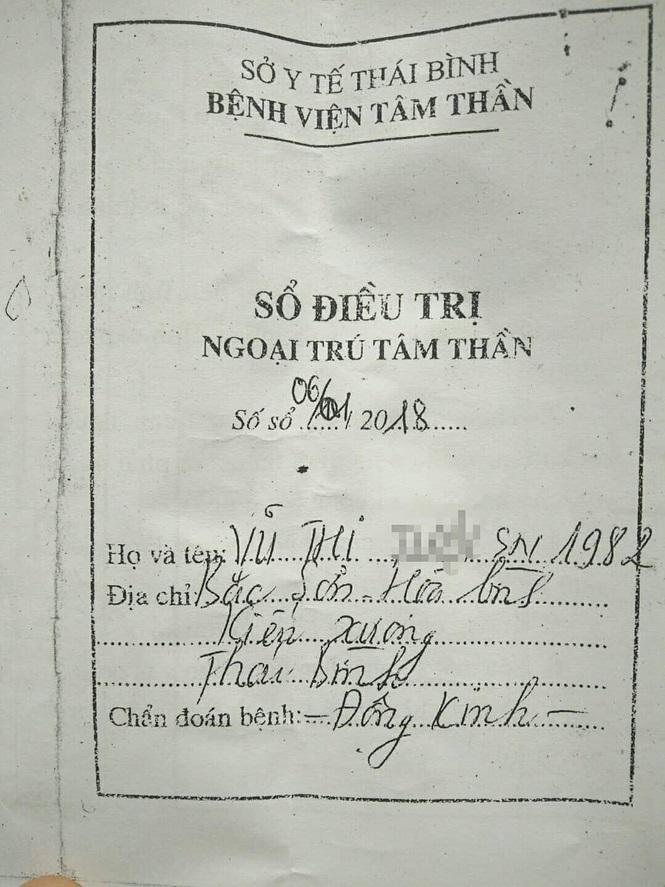 SỞ Y TẾ THÁI BÌNH
BỆNH VIỆN TÂM THẦN
SỔ ĐIỀU TRỊ
NGOẠI TRÚ TÂM THẦN
Số sổ 06/01/2018
Họ và tên: VŨ THỊ SN 1982
Địa chỉ: Bắc Sơn - Hòa Bình
Kiến Xương
Thái Bình
Chẩn đoán bệnh: - Động Kinh -